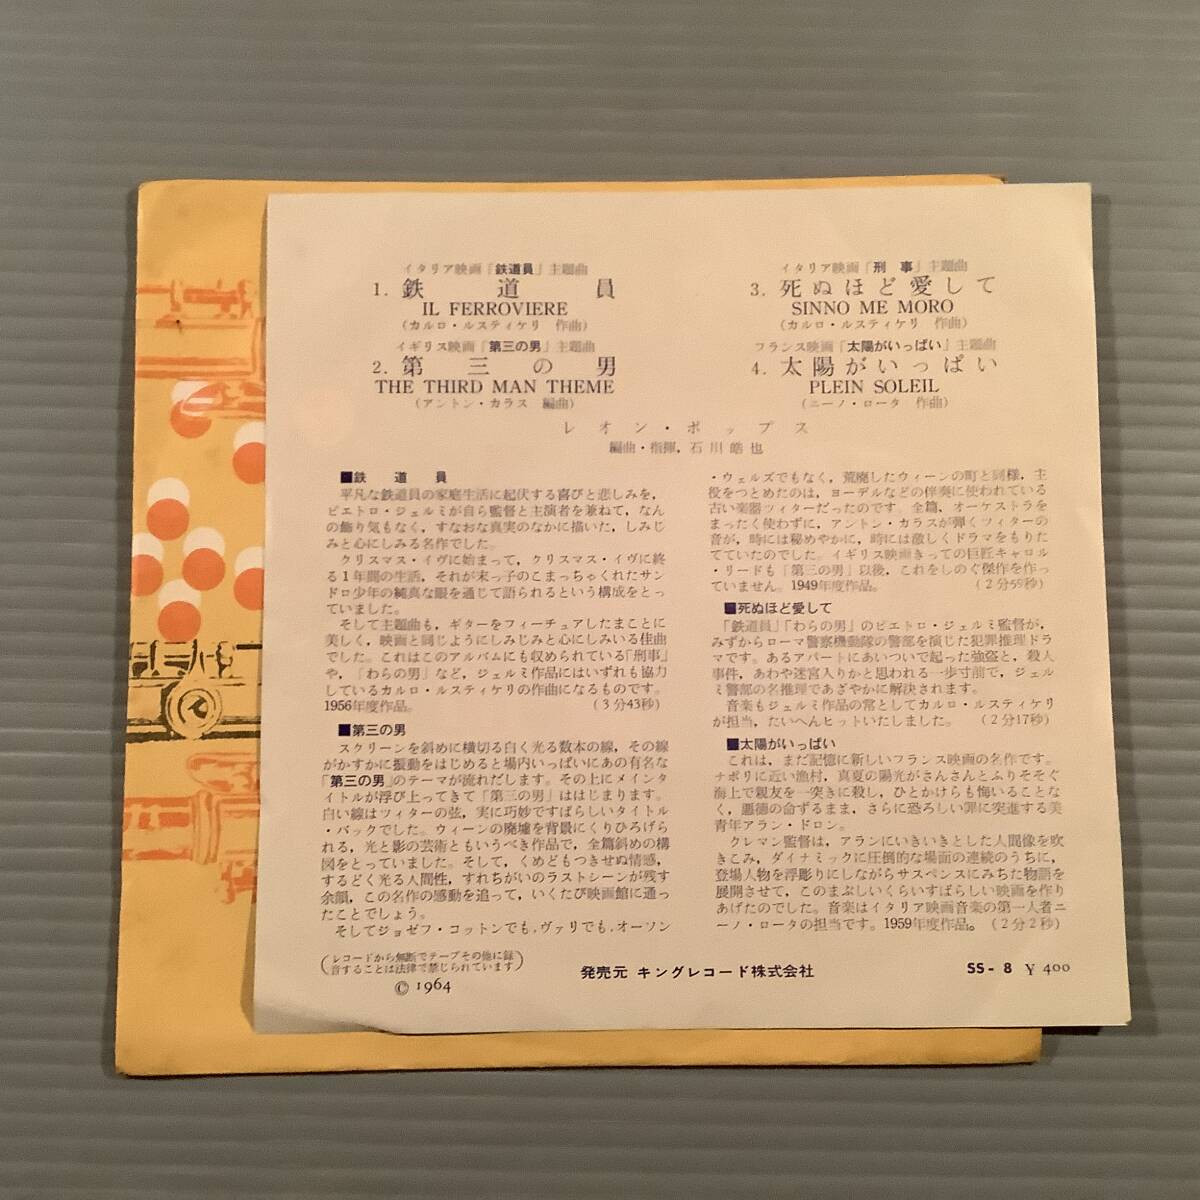 イタリア映画「鉄道員」主題曲
1. 鉄道員
IL FERROVIERE
(カルロ・ルスティケリ 作曲)
イギリス映画「第三の男」主題曲
2. 第三の男
THE THIRD MAN THEME
(アントン・カラス 編曲)
イタリア映画「刑事」主題曲
3. 死ぬほど愛して
SINNO ME MORO
(カルロ・ルスティケリ 作曲)
フランス映画「太陽がいっぱい」主題曲
4. 太陽がいっぱい
PLEIN SOLEIL
(ニーノ・ロータ 作曲)
レオン・ポップス
編曲・指揮, 石川皓也
■鉄道員
平凡な鉄道員の家庭生活に起伏する喜びと悲しみを,
ピエトロ・ジェルミが自ら監督と主演者を兼ねて, なん
の飾り気もなく, すなおな真実のなかに描いた, しみじ
みと心にしみる名作でした。
クリスマス・イヴに始まって, クリスマス・イヴに終
る1年間の生活, それが末っ子のこまっちゃくれたサン
ドロ少年の純真な眼を通じて語られるという構成をとっ
ていました。
そして主題曲も, ギターをフィーチュアしたまことに
美しく, 映画と同じようにしみじみと心にしみいる佳曲
でした。これはこのアルバムにも収められている「刑事」
や, 「わらの男」など, ジェルミ作品にはいずれも協力
しているカルロ・ルスティケリの作曲になるものです。
1956年度作品。 (3分43秒)
■第三の男
スクリーンを斜めに横切る白く光る数本の線, その線
がかすかに振動をはじめると場内いっぱいにあの有名な
「第三の男」のテーマが流れだします。その上にメインタ
イトルが浮び上ってきて「第三の男」ははじまります。
白い線はツィターの弦, 実に巧妙ですばらしいタイトル
・バックでした。ウィーンの廃墟を背景にくりひろげら
れる, 光と影の芸術ともいうべき作品で, 全篇斜めの構
図をとっていました。そして, くめどもつきせぬ情感,
するどく光る人間性, すれちがいのラストシーンが残す
余韻, この名作の感動を追って, いくたび映画館に通っ
たことでしょう。
そしてジョゼフ・コットンでも, ヴァリでも, オーソン
・ウェルズでもなく, 荒廃したウィーンの町と同様, 主
役をつとめたのは, ヨーデルなどの伴奏に使われている
古い楽器ツィターだったのです。全篇, オーケストラを
まったく使わずに, アントン・カラスが弾くツィターの
音が, 時には秘めやかに, 時には激しくドラマをもりた
てていたのでした。イギリス映画きっての巨匠キャロル
・リードも「第三の男」以後, これをしのぐ傑作を作っ
ていません。1949年度作品。 (2分59秒)
■死ぬほど愛して
「鉄道員」「わらの男」のピエトロ・ジェルミ監督が,
みずからローマ警察機動隊の警部を演じた犯罪推理ドラ
マです。あるアパートにあいついで起った強盗と, 殺人
事件, あわや迷宮入りかと思われる一歩寸前で, ジェル
ミ警部の名推理であざやかに解決されます。
音楽もジェルミ作品の常としてカルロ・ルスティケリ
が担当, たいへんヒットいたしました。 (2分17秒)
■太陽がいっぱい
これは, まだ記憶に新しいフランス映画の名作です。
ナポリに近い漁村, 真夏の陽光がさんさんとふりそそぐ
海上で親友を一突きに殺し, ひとかけらも悔いることな
く, 悪徳の命ずるまま, さらに恐ろしい罪に突進する美
青年アラン・ドロン。
クレマン監督は, アランにいきいきとした人間像を吹
きこみ, ダイナミックに圧倒的な場面の連続のうちに,
登場人物を浮彫りにしながらサスペンスにみちた物語を
展開させて, このまぶしいくらいすばらしい映画を作り
あげたのでした。音楽はイタリア映画音楽の第一人者ニ
ーノ・ロータの担当です。1959年度作品。 (2分2秒)
(レコードから無断でテープその他に録
音することは法律で禁じられています)
© 1964
発売元 キングレコード株式会社
SS-8 ¥400